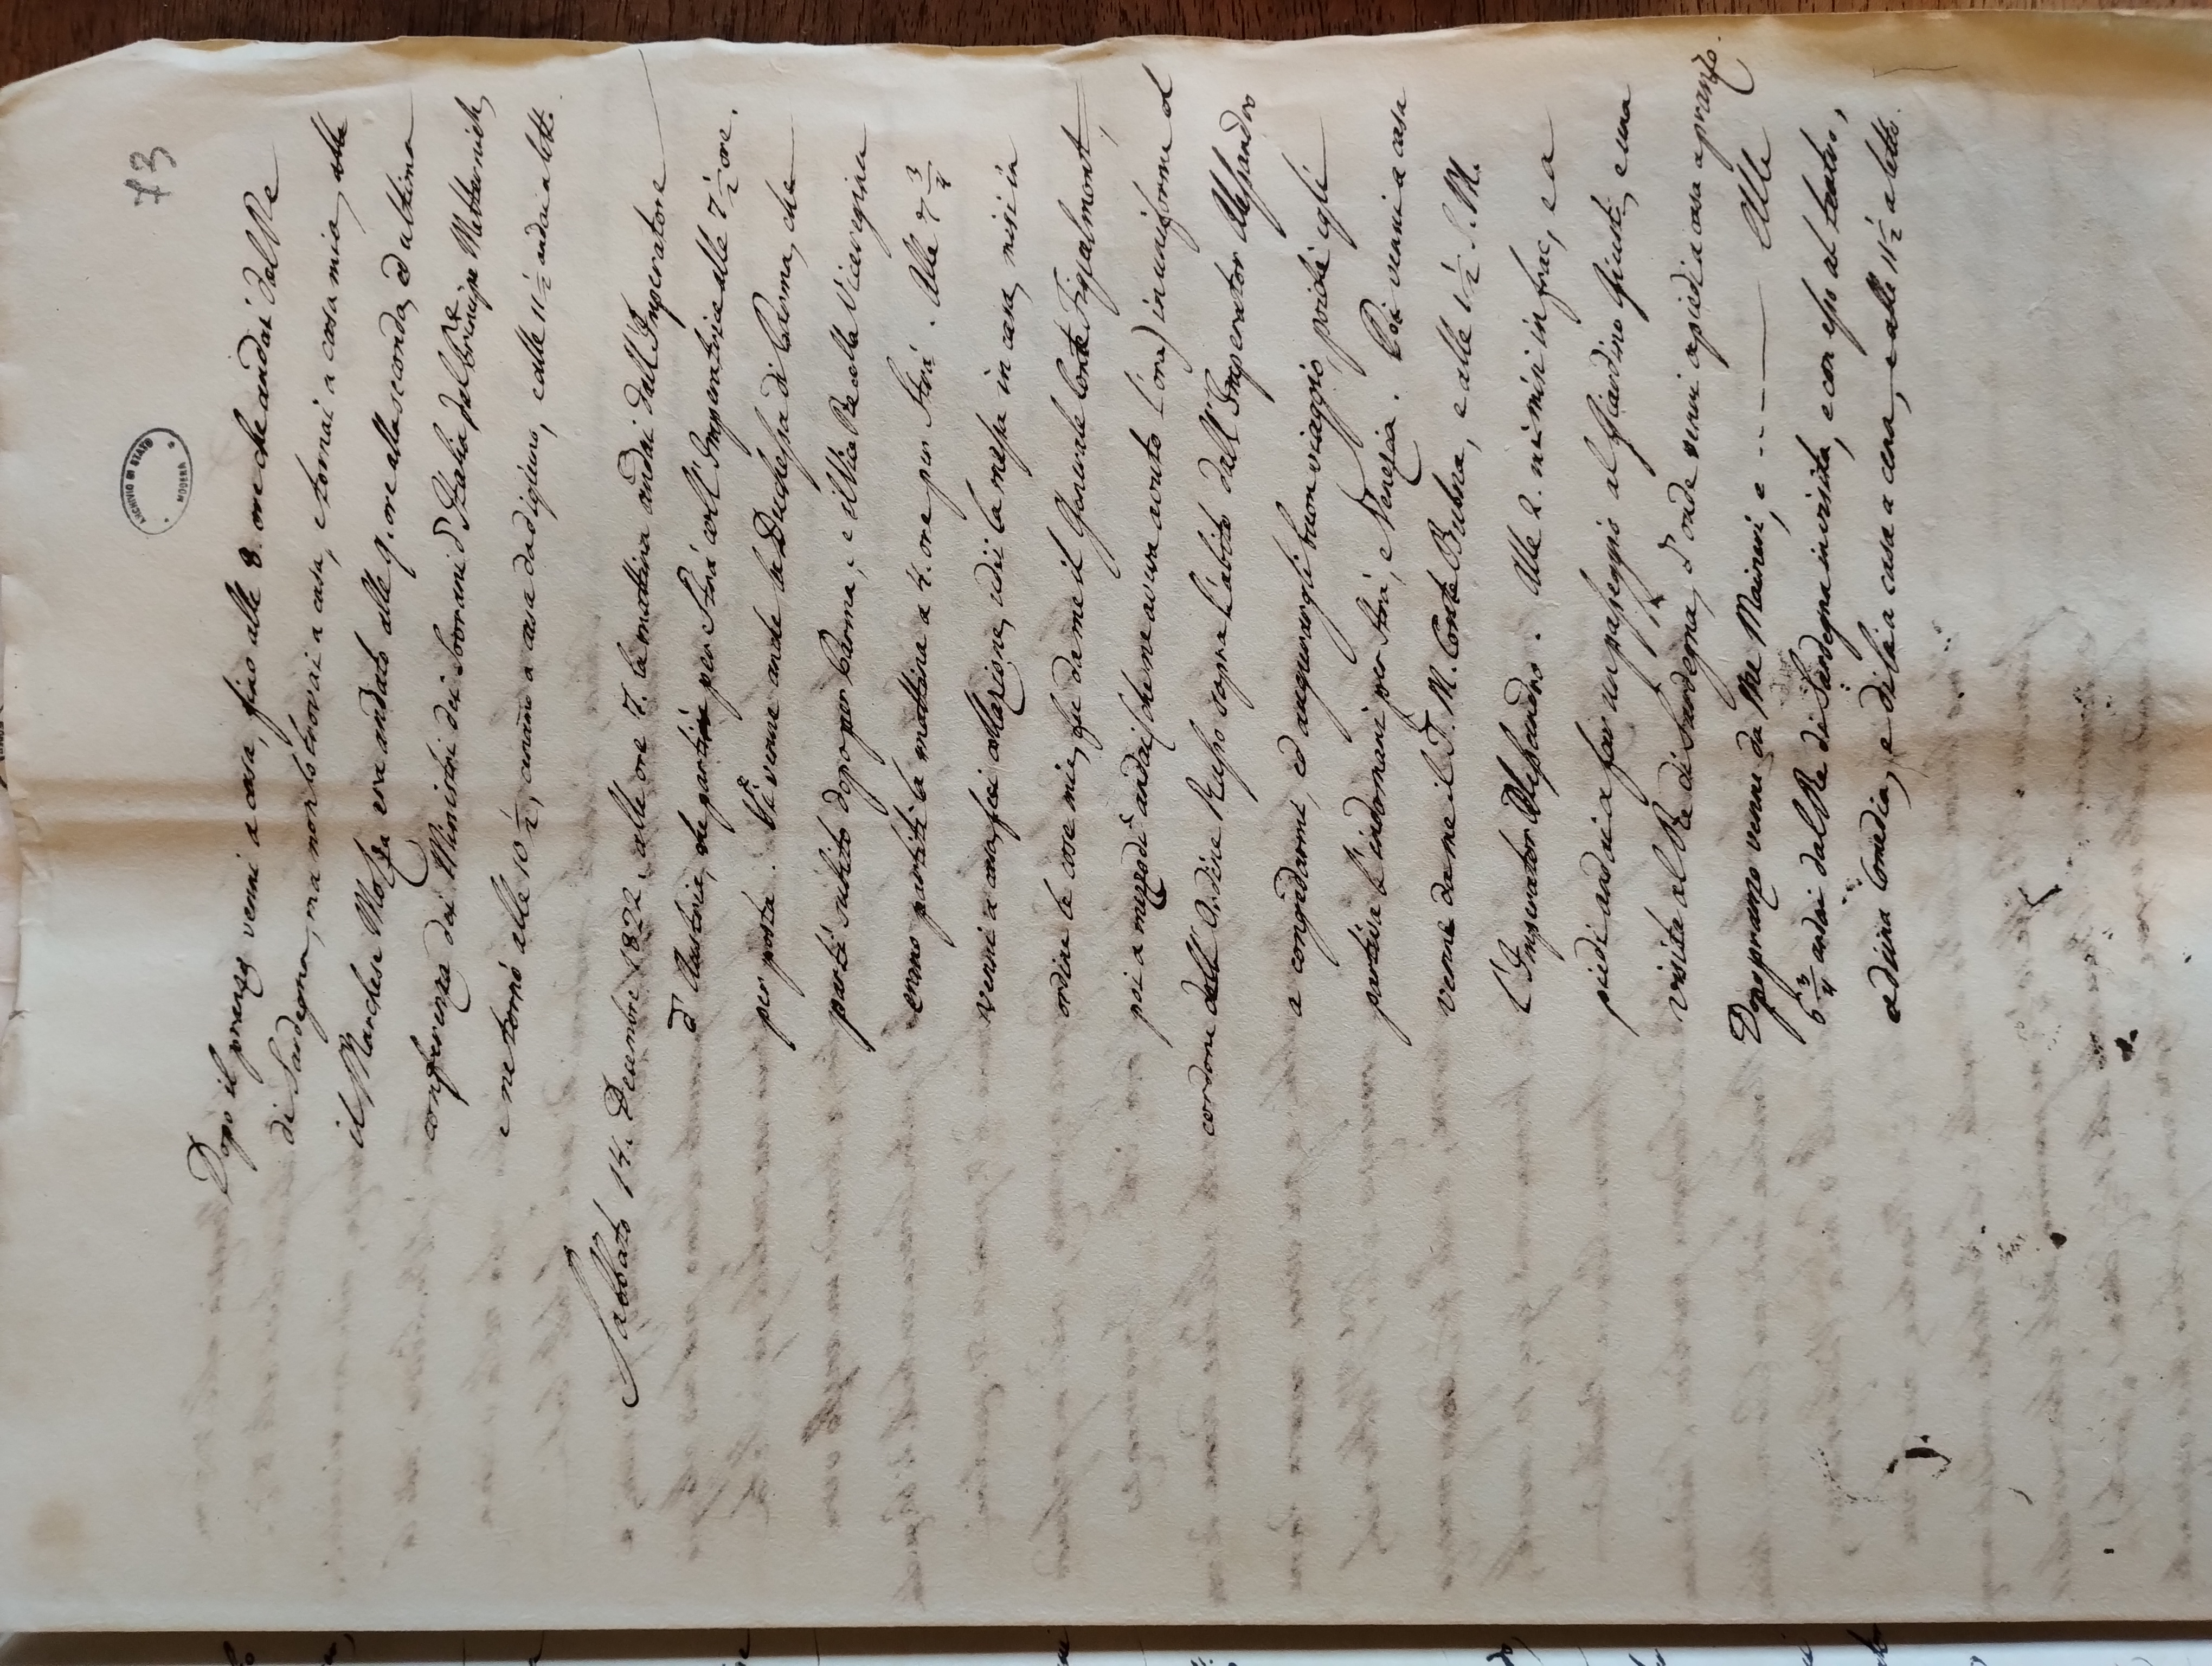 73
ARCHIVIO DI STATO
MODENA
Dopo il pranzo venni a casa, fino alle 8. ore che andai dal Re
di Sardegna, ma non lo trovai a casa, e tornai a casa mia, alle
il Marchese Molza era andato alle 9. ore alla seconda, ed ultima
conferenza dei Ministri dei Sovrani d'Italia dal Pre Principe Metternich,
e ne tornò alle 10 1/2, cenammo a casa da digiuno, e alle 11 1/2 andai a letto.
Sabbato 14. Decembre 1822. alle ore 7. la mattina andai dall'Imperatore
d'Austria, che partiva per Strà coll'Imperatrice alle 7 1/2 ore.
per posta. Vi venne anche la Duchessa di Parma, che
partì subito dopo per Parma, e il Vice Re colla Viceregina
erano partiti la mattina a 4. ore per Strà. Alle 7 3/4
venni a casa, feci colazione, udii la messa in casa, misi in
ordine le cose mie, fu da me il Generale Conte Fiquelmont,
poi a mezzodì andai (che ne aveva avuto l'ora) in uniforme col
cordone dell'Ordine Russo sopra l'abito dall'Imperator Alessandro
a congedarmi, ed augurargli buon viaggio, poiché egli
partiva l'indomani per Strà, e Venezia. Poi venni a casa
venne da me il T. M. Conte Bubna, e alle 1 1/2 S. M.
l'Imperator Alessandro. Alle 2. mi misi in frac, e a
piedi andai a far un passeggio al Giardino Giusti, e una
visita al Re di Sardegna, d'onde venni a piedi a casa a pranzo.
Dopo pranzo venne da me Maineri, e - - - — Alle
6 3/4 andai dal Re di Sardegna in visita, e con esso al teatro,
ad una Comedia, e di là a casa a cena, e alle 11 1/2 a letto.